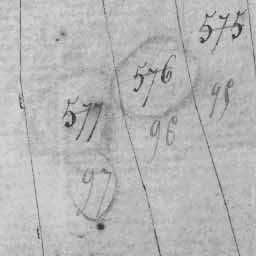 575
576
577
95
96
97